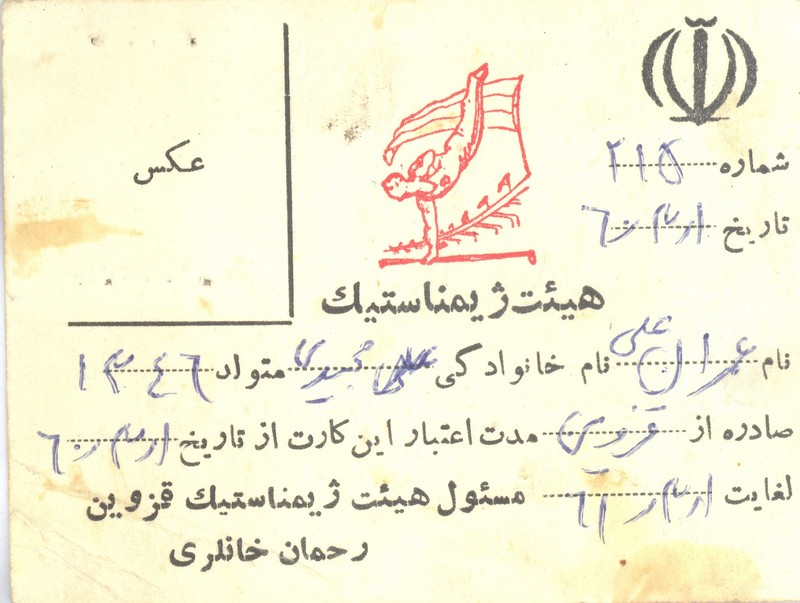 عکس
شماره ۲۱۵
تاریخ ۶۰/۳/۱
هیئت ژیمناستیك
نام عمران علی نام خانوادگی متولد ۱۳۴۶
صادره از قزوین مدت اعتبار این کارت از تاریخ ۶۰/۳/۱
لغایت ۶۱/۳/۱ مسئول هیئت ژیمناستیك قزوین
رحمان خانلری